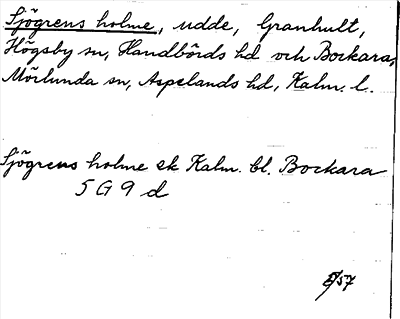 Sjögrens holme, udde, Granhult,
Högsby sn, Handbörds hd och Bockara,
Mörlunda sn, Aspelands hd, Kalm. l.
Sjögrens holme ek Kalm. bl. Bockara
5 G 9 d
57